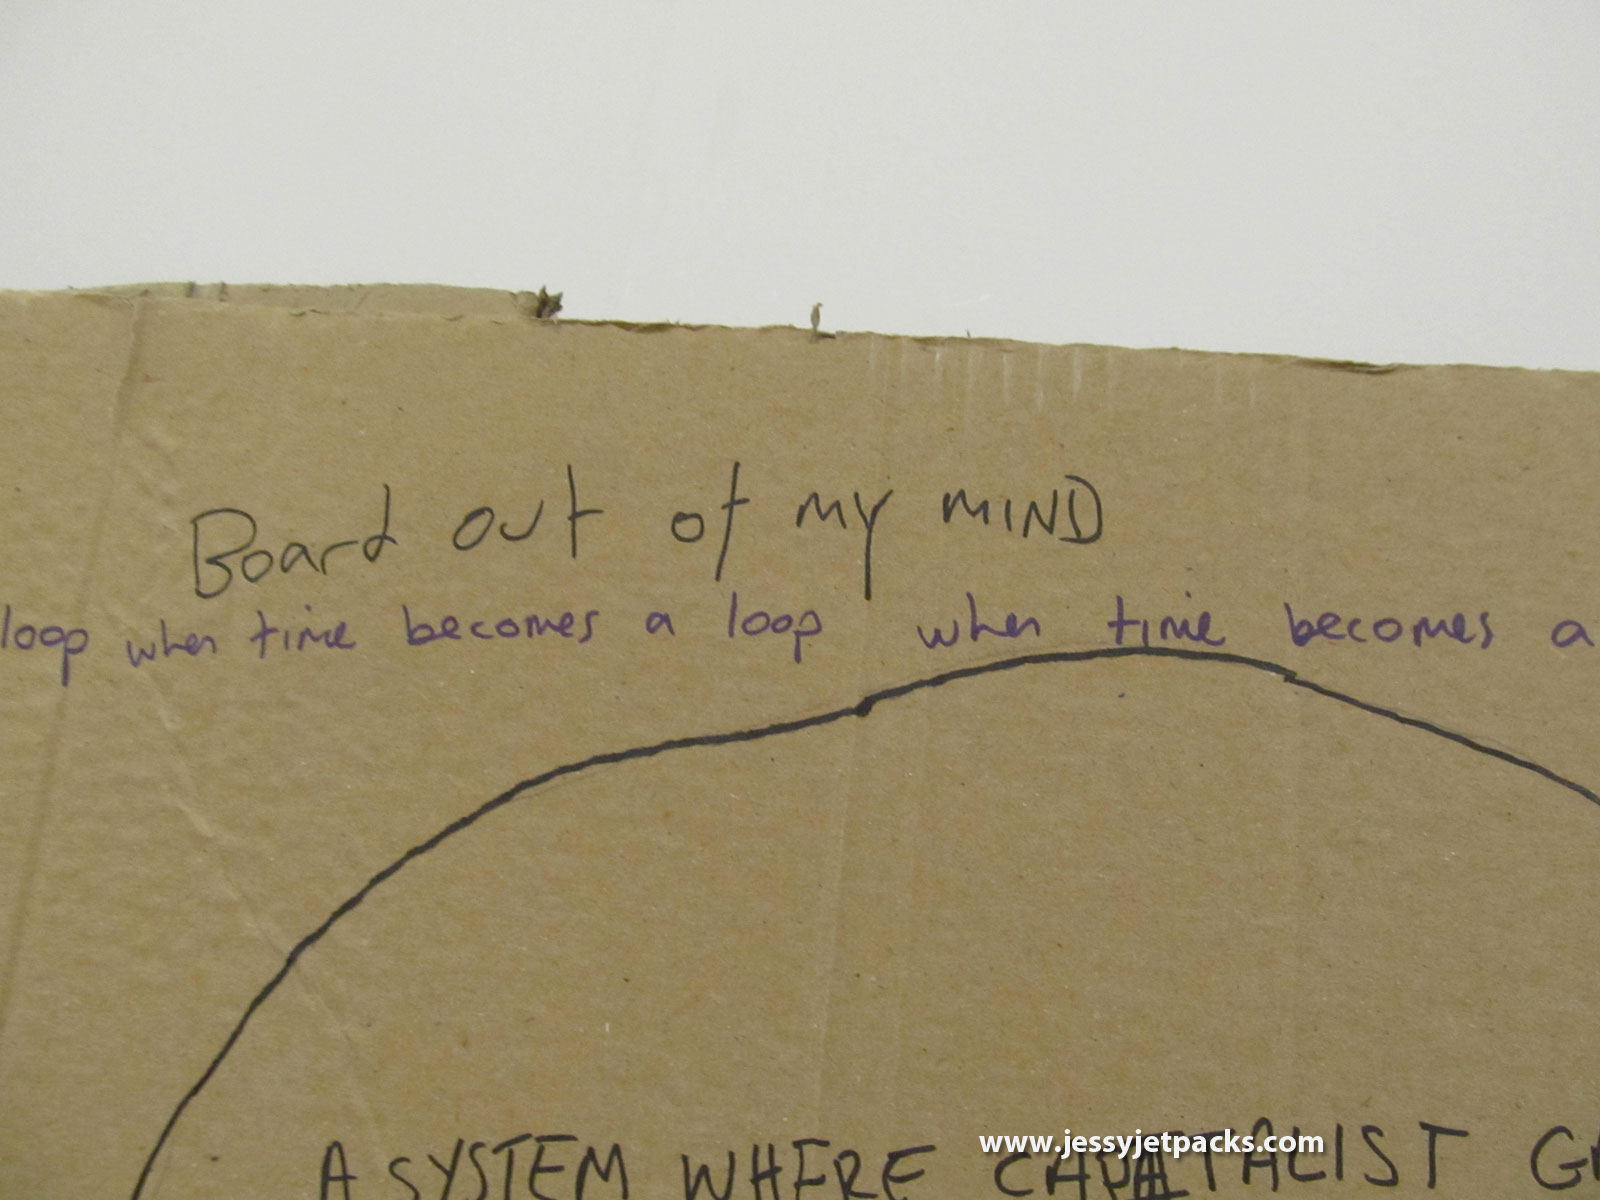 Board out of my MIND
loop when time becomes a loop when time becomes a
A SYSTEM WHERE CAPATALIST
www.jessyjetpacks.com